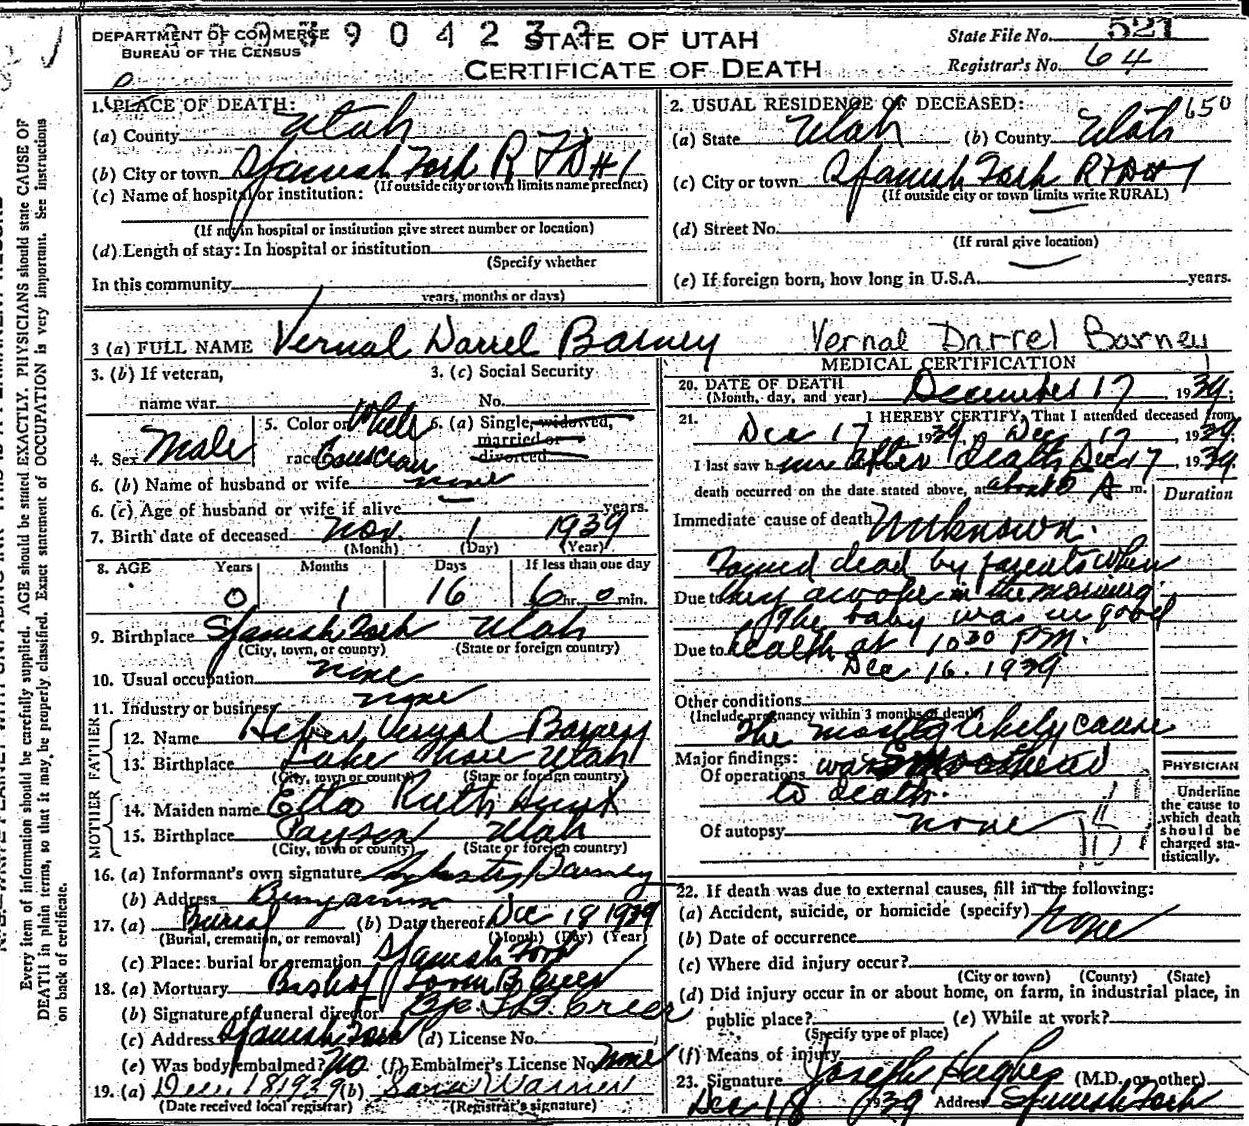 DEPARTMENT OF COMMERCE
BUREAU OF THE CENSUS
STATE OF UTAH
CERTIFICATE OF DEATH
State File No. 521
Registrar's No. 64
1. PLACE OF DEATH:
(a) County Utah
(b) City or town Spanish Fork R F D #1
(If outside city or town limits name precinct)
(c) Name of hospital or institution:
(If not in hospital or institution give street number or location)
(d) Length of stay: In hospital or institution
(Specify whether
In this community
years, months or days)
2. USUAL RESIDENCE OF DECEASED:
650
(a) State Utah (b) County Utah
(c) City or town Spanish Fork RFD #1
(If outside city or town limits write RURAL)
(d) Street No.
(If rural give location)
(e) If foreign born, how long in U.S.A. years.
3 (a) FULL NAME Vernal Darrel Barney Vernal Darrel Barney
3. (b) If veteran,
name war
3. (c) Social Security
No.
4. Sex Male
5. Color or race White Caucasian
6. (a) Single, widowed,
married or
divorced
6. (b) Name of husband or wife none
6. (c) Age of husband or wife if alive years.
7. Birth date of deceased Nov. 1 1939
(Month) (Day) (Year)
8. AGE Years Months Days If less than one day
0 1 16 6 hr. 0 min.
9. Birthplace Spanish Fork Utah
(City, town, or county) (State or foreign country)
10. Usual occupation none
11. Industry or business none
FATHER
12. Name Verynal Barney
13. Birthplace Lake Shore Utah
(City, town or county) (State or foreign country)
MOTHER
14. Maiden name Etta Ruth
15. Birthplace Payson Utah
(City, town or county) (State or foreign country)
16. (a) Informant's own signature Barney
(b) Address Benjamin
17. (a) Burial (b) Date thereof Dec 18 1939
(Burial, cremation, or removal) (Month) (Day) (Year)
(c) Place: burial or cremation Spanish Fork
18. (a) Mortuary Bishop
(b) Signature of funeral director
(c) Address Spanish Fork (d) License No.
(e) Was body embalmed? No (f) Embalmer's License No. none
19. (a) Dec. 18 1939 (b) Sara Warner
(Date received local registrar) (Registrar's signature)
MEDICAL CERTIFICATION
20. DATE OF DEATH
(Month, day, and year) December 17, 1939;
21. I HEREBY CERTIFY, That I attended deceased from
Dec 17, 1939, Dec 17, 1939.
I last saw h after death Dec 17, 1939.
death occurred on the date stated above, at about 6 A m.
Duration
Immediate cause of death Unknown.
Found dead by parents when
Due to they awoke in the morning.
The baby was in good
Due to health at 10 30 P.M.
Dec 16. 1939
Other conditions
(Include pregnancy within 3 months of death)
The most likely cause
Major findings:
Of operations was Smothered
to death.
Of autopsy none
PHYSICIAN
Underline
the cause to
which death
should be
charged sta-
tistically.
22. If death was due to external causes, fill in the following:
(a) Accident, suicide, or homicide (specify) None
(b) Date of occurrence
(c) Where did injury occur?
(City or town) (County) (State)
(d) Did injury occur in or about home, on farm, in industrial place, in
public place? (e) While at work?
(Specify type of place)
(f) Means of injury
23. Signature Joseph Hughes (M.D. or other)
Dec 18 1939 Address Spanish Fork
Every item of information should be carefully supplied. AGE should be stated EXACTLY. PHYSICIANS should state CAUSE OF
DEATH in plain terms, so that it may be properly classified. Exact statement of OCCUPATION is very important. See instructions
on back of certificate.